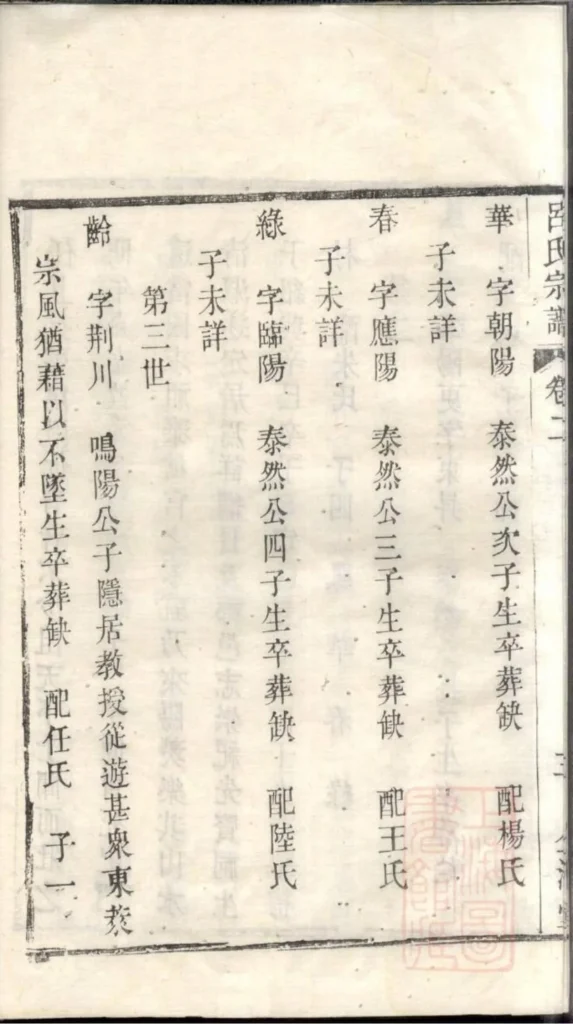 呂氏宗譜 卷二 三
華 字朝陽 泰然公次子生卒葬缺 配楊氏
子未詳
春 字應陽 泰然公三子生卒葬缺 配王氏
子未詳
綠 字臨陽 泰然公四子生卒葬缺 配陸氏
子未詳
第三世
齡 字荆川 鳴陽公子隱居教授從遊甚衆東萊
宗風猶藉以不墜生卒葬缺 配任氏 子一